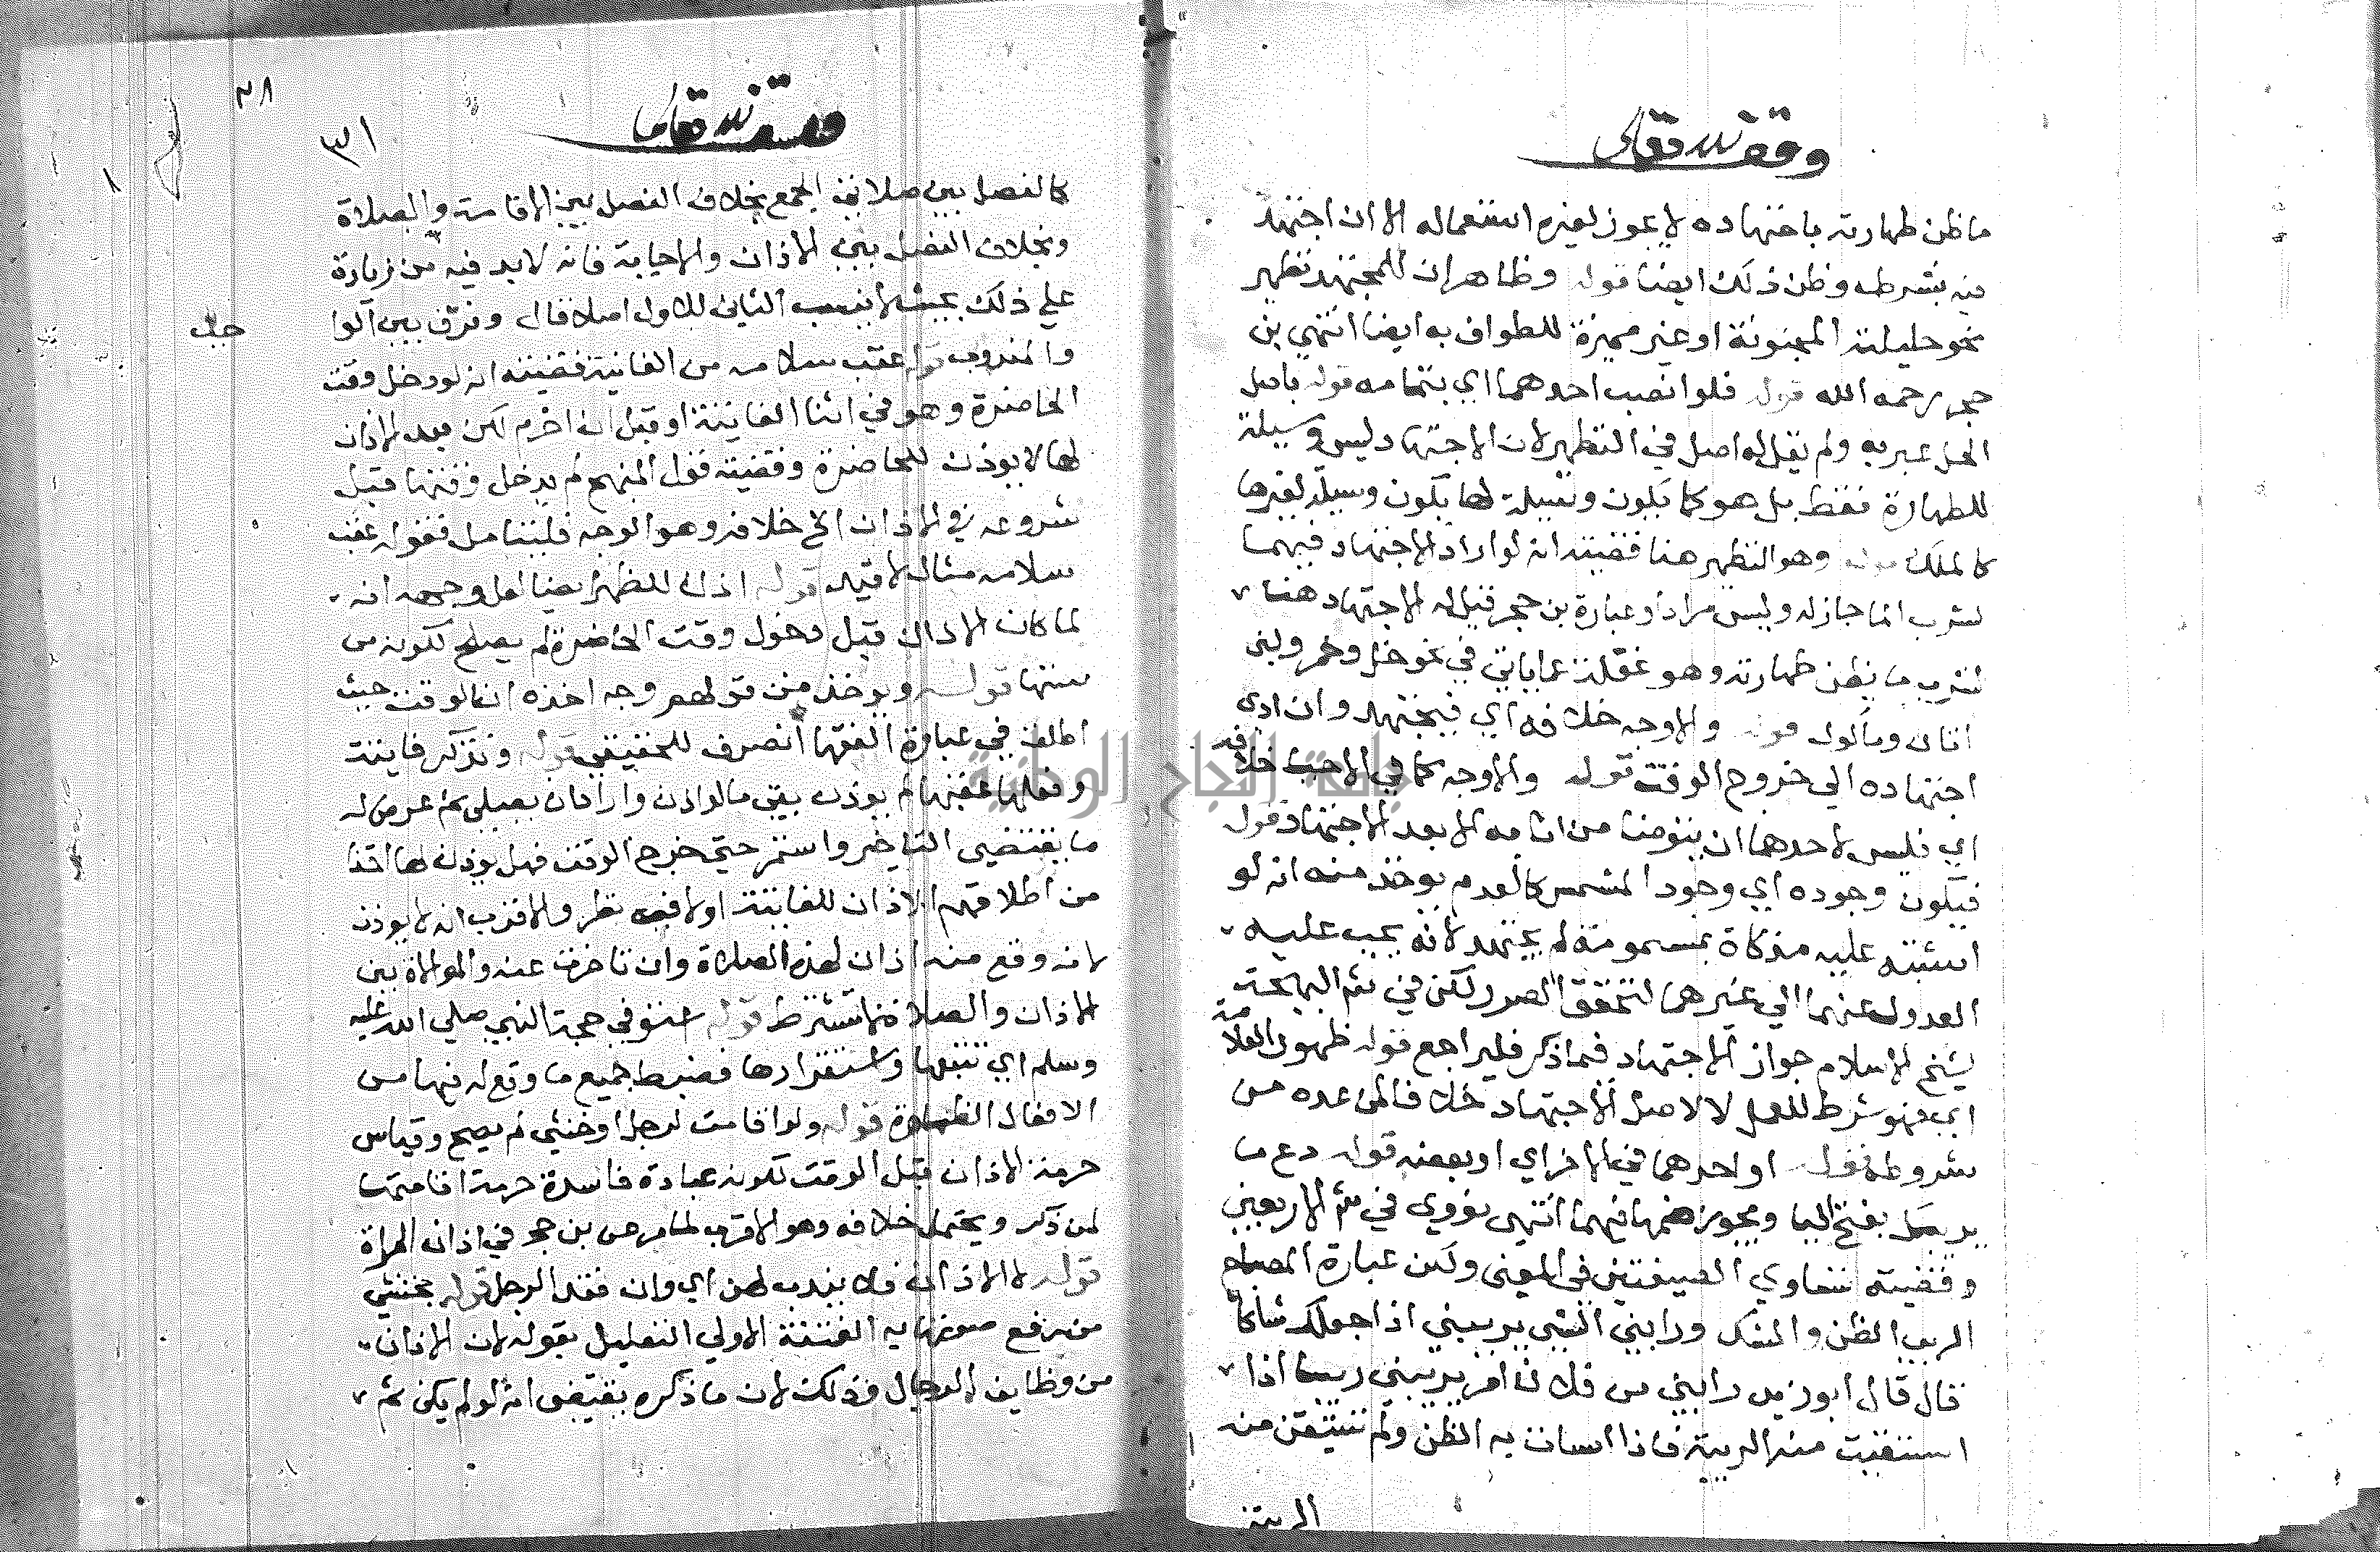 وقف لله تعالى
ما ظن طهارته باجتهاده لا يجوز لغيره استعماله الا ان اجتهد
فيه بشرطه وظن ذلك ايضا قوله وظاهر ان للمجتهد تطهير
نحو حليلته المجنونة او غير مميزة للطواف به ايضا انتهي بن
حجر رحمه الله قوله فلو انصب احدهما اي بتمامه قوله باصل
الحل عبر به ولم يقل له اصل في التطهير لان الاجتهاد ليس وسيلة
للطهارة فقط بل هو كما يكون وسيلة لها يكون وسيلة لغيرها
كالملك قوله وهو التطهير هنا قضيته انه لو اراد الاجتهاد فيهما
لشرب انما جاز له وليس مرادا وعبارة بن حجر قيل له الاجتهاد هنا
لشرب ما يظن طهارته وهو غفلة عما ياتي في نحو خل وخمر ولبن
اتان ومأكول قوله والاوجه خلافه اي فيجتهد وان ادى
اجتهاده الي خروج الوقت قوله والاوجه كما في الاحيا خلافه
اي فليس لاحدهما ان يتوضا من انا منه الا بعد الاجتهاد قوله
فيكون وجوده اي وجود المشمس كالعدم يوخذ منه انه لو
اشتبه عليه مذكاة بمسمومة لم يجتهد لانه يجب عليه
العدول عنهما الي غيرهما لتحقق الضرر لكن في شرح البهجة
لشيخ الاسلام جواز الاجتهاد فيما ذكر فليراجع قوله ظهور العلامة
اي فهو شرط للعمل لا لاصل الاجتهاد خلافا لمن عده من
شروطه قوله او احدهما في الاخر اي او بعضه قوله دع ما
يريبك بفتح اليا ويجوز ضمها فيهما انتهى نووي في شرح الاربعين
وقضيته تساوي الصيغتين في المعنى ولكن عبارة المصباح
الريب الظن والشك ورابني الشي يريبني اذا جعلك شاكا
قال قال ابو زيد رابني من فلان امر يريبني ريبا اذا
استيقنت منه الريبة فاذا اسات به الظن ولم تستيقن منه
الريبة
وقف لله تعالى
٣٨
٣١
كالفصل بين صلاتي الجمع بخلاف الفصل بين الاقامة والصلاة
وبخلاف الفصل بين الاذان والاجابة فانه لا بد فيه من زيادة
علي ذلك بحيث لا ينسب الثاني للاول اصلا قال وفرق بين الوا
جب
والمندوب قوله عقب سلامه من الفايتة قضيته انه لو دخل وقت
الحاضرة وهو في اثنا الفايتة او قبل ان احرم لكن بعد الاذان
لها لا يوذن للحاضرة وقضيته قول المنهج لم يدخل وقتها قبل
شروعه في الاذان الخ خلافه وهو الوجه فليتامل فقوله عقب
سلامه مثال لا قيد قوله اذان للظهر ايضا لعل وجهه انه
لما كان الاذان قبل دخول وقت الحاضرة لم يصلح لكونه من
سنتها قوله ويوخذ من قولهم وجه اخذه ان الوقت حيث
اطلق في عبارة الفقها انصرف للحقيقي قوله وتذكر فايتة
وفعلها عقبها لم يوذن بقي ما لو اذن واراد ان يصلي ثم عرض له
ما يقتضي التاخير واستمر حتي خرج الوقت فهل يوذن لها اخذا
من اطلاقهم الاذان للفايتة او لا فيه نظر والاقرب انه لا يوذن
لانه وقع منه اذان لهذه الصلاة وان تاخرت عنه والموالاة بين
الاذان والصلاة لا تشترط قوله في حجة النبي صلي الله عليه
وسلم اي تتبعها واستقرارها فضبط جميع ما وقع له فيها من
الافعال الظاهرة قوله ولو اقامت لرجل او خنثي لم يصح وقياس
حرمة الاذان قبل الوقت لكونه عبادة فاسدة حرمة اقامتها
لمن ذكر ويحتمل خلافه وهو الاقرب لما مر عن بن حجر في اذان المراة
قوله لا الاذان فلا يندب لهن اي وان فقد الرجل قوله يخشى
من رفع صوتها به الفتنة الاولي التعليل بقوله لان الاذان
من وظايف الرجال وذلك لان ما ذكره يقتضي انه لو لم يكن ثم
جامعة النجاح الوطنية